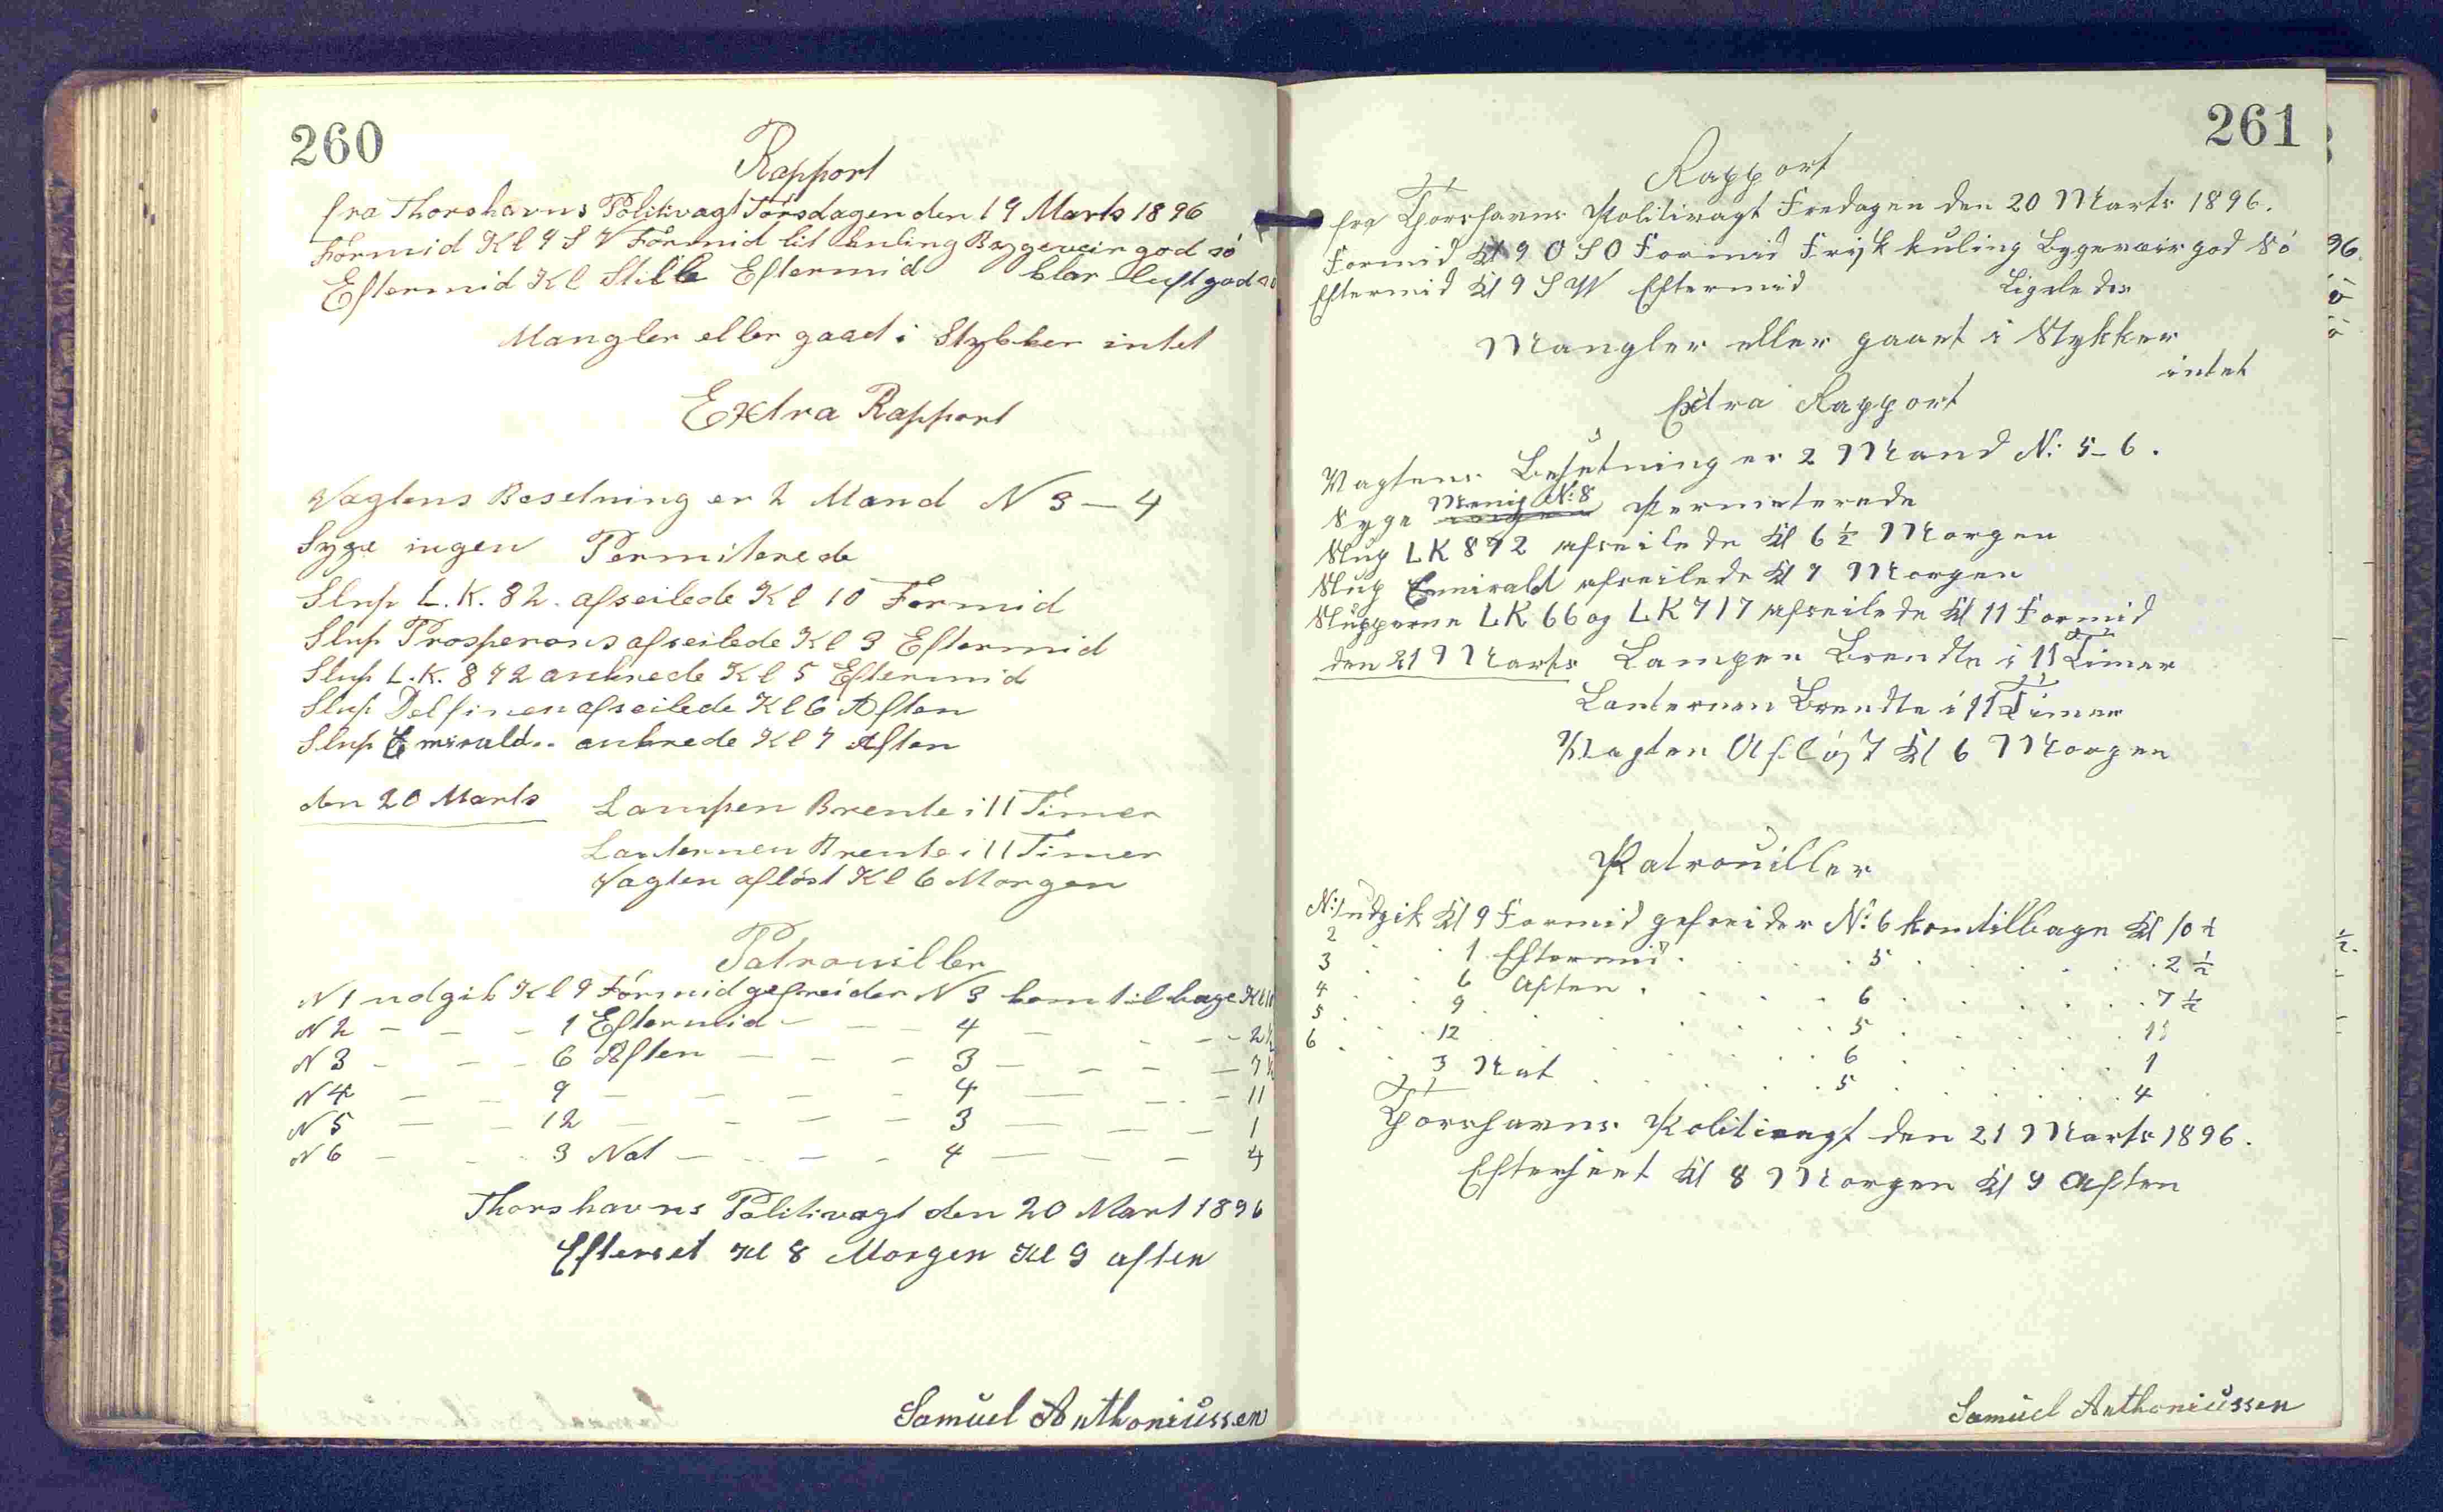 260
Rapport
fra Thorshavns Politivagt Torsdagen den 19 Marts 1896
Formid Kl 9 S V Formid lit kuling Bygeveir god só
Eftermid Kl Stille Eftermid klar luft god só
Mangler eller gaaet i Stykker intet
Extra Rapport
Vagtens Besetning er 2 Mand N 3 — 4
Syge ingen Permiterede
Slup L. K. 82. afseilede Kl 10 Formid
Slup Prosperous afseilede Kl 3 Eftermid
Slup L. K. 872 ankrede Kl 5 Eftermid
Slup Delfinen afseilede Kl 6 Aften
Slup Emirald.. ankrede Kl 7 Aften
den 20 Marts Lampen Brente i 11 Timer
Lanternen Brente i 11 Timer
Vagten aflöst Kl 6 Morgen
Patrouiller
N 1 udgik Kl 9 Formid gefreider N 3 kom tilbage Kl
N 2 — — — 1 Eftermid — — — 4 — — — 2½
N 3 — — — 6 Aften — — — 3 — — — 7½
N 4 — — 9 — — — — 4 — — — 11
N 5 — — 12 — — — — 3 — — — 1
N 6 — — 3 Nat — — — 4 — — — 4
Thorshavns Politivagt den 20 Mart 1896
Efterset Kl 8 Morgen Kl 9 aften
Samuel Anthoniussen
261
Rapport
fra Thorshavns Politivagt Fredagen den 20 Marts 1896.
Formid Kl 9 O S O Formid Frisk kuling Bygeveir god Só
Eftermid Kl 9 S W Eftermid Ligeledes
Mangler eller gaaet i Stykker
intet
Extra Rapport
Vagtens Besetning er 2 Mand N: 5-6.
Syge Menig N: 8 Permiterede
Slup LK 872 afseilede Kl 6½ Morgen
Slup Emirald afseilede Kl 7 Morgen
Slupperne LK 66 og LK 717 afseilede Kl 11 Formid
den 21 Marts Lampen Brendte i 11 Timer
Lanternen Brendte i 11 Timer
Vagten Aflöst Kl 6 Morgen
Patrouiller
N: 1 udgik Kl 9 Formid gefreider N: 6 kom tilbage Kl 10½
2 . . 1 Eftermid . . . 5 . . . 2½
3 . . 6 Aften . . . 6 . . . 7½
4 . . 9 . . . 5 . . . 11
5 . . 12 . . . 6 . . . 1
6 . . 3 Nat . . . 5 . . . 4
Thorshavns Politivagt den 21 Marts 1896.
Efterseet Kl 8 Morgen Kl 9 Aften
Samuel Anthoniussen
96.